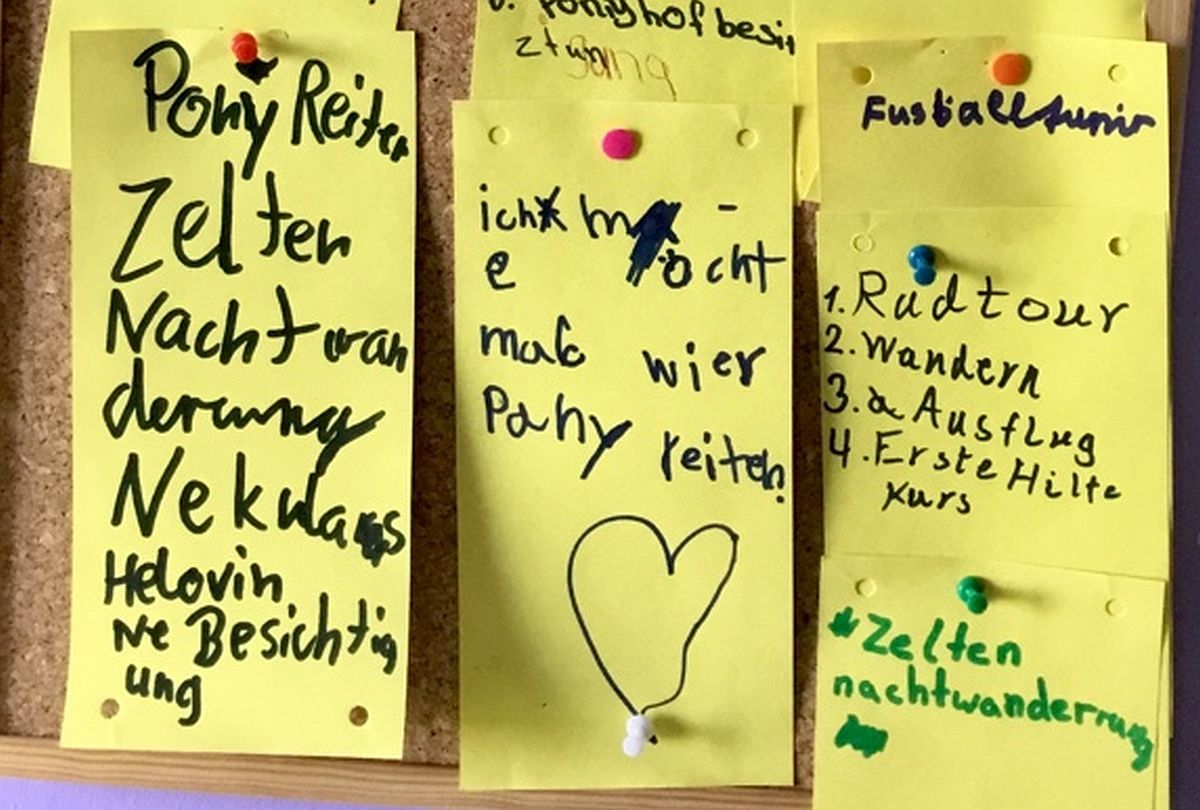 Pony Reiten
Zelten
Nachtwan
derung
Nekla s
Helovin
Ne Besichtig
ung
Ponyhof besi
ich m -
e öcht
mal wier
Pony reiten
Fusballturnir
1. Radtour
2. Wandern
3. Ausflug
4. Erste Hilfe
Kurs
Zelten
nachtwanderrung